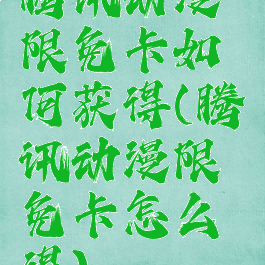 腾讯动漫
限免卡如
何获得(腾
讯动漫限
免卡怎么
得)